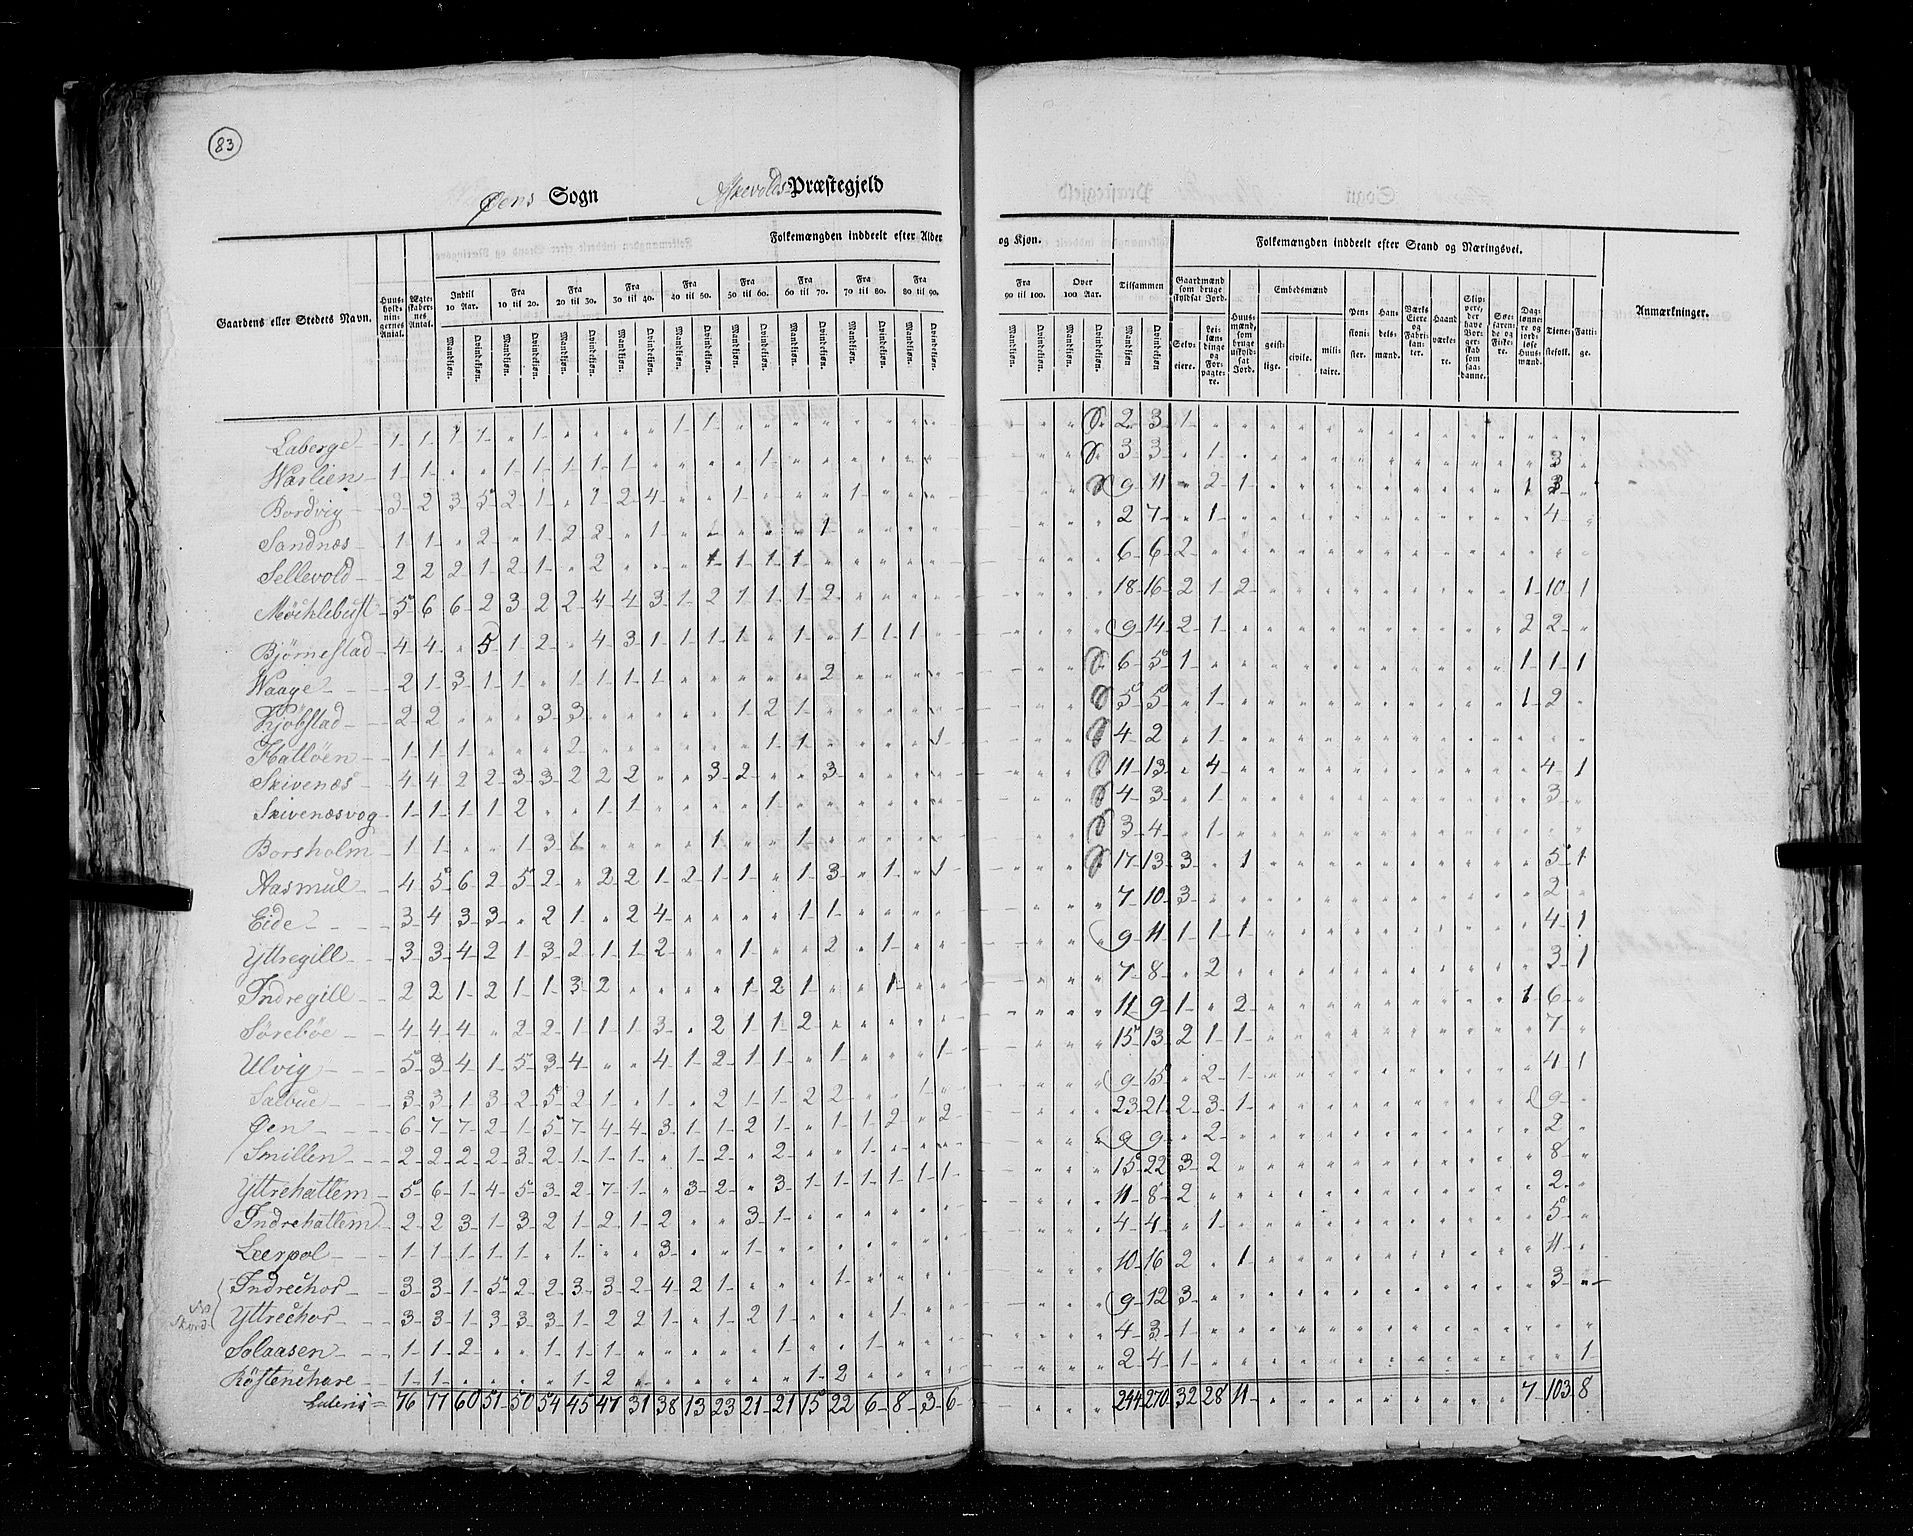 83
Øens Sogn Askevolds Præstegjeld
Folkemængden inddeelt efter Alder og Kjøn.
Folkemængden inddeelt efter Stand og Næringsvei.
Gaardens eller Stedets Navn.
Huus-holdnin-gernes Antal.
Ægte-skaber-nes Antal.
Indtil 10 Aar.
Fra 10 til 20.
Fra 20 til 30.
Fra 30 til 40.
Fra 40 til 50.
Fra 50 til 60.
Fra 60 til 70.
Fra 70 til 80.
Fra 80 til 90.
Fra 90 til 100.
Over 100 Aar.
Tilsammen
Mandkjøn. Qvindekjøn.
Gaardmænd som bruge skyldsat Jord.
Selv-eiere.
Lei-læn-dinge og For-pagte-re.
Huus-mænd, som bruge uskyld-sat Jord.
Embedsmænd
geist-lige.
civile.
mili-taire.
Pen-sioni-ster.
Han-dels-mænd.
Værks Eiere og Fabri-kan-ter.
Haand værke-re.
Slip-pere, der have Bor-ger-skab som saa-danne.
Søe-farende og Fiske-re.
Dag-lønne-re og jord-løse Huus-mænd.
Tiene-stefolk.
Fatti-ge.
Anmærkninger.
Laberge 1 1 1 1 " 1 " " " " 1 1 2 3 1
Warlien 1 1 " " 1 1 1 1 1 " " " " 1 3 3 " 1 3
Bordvig 3 2 3 5 2 1 " 1 2 4 " " 1 " " " 1 9 11 " 2 1 1 3
Sandnæs 1 1 " 2 " 1 2 2 " 1 2 7 " 1 4
Sellevold 2 2 2 1 2 1 " 2 " " " 1 1 1 1 6 6 2
Møchlebust 5 6 6 2 3 2 2 4 4 3 1 2 1 1 1 2 18 16 2 1 2 1 10 1
Bjørnestad 4 4 " 5 1 2 " 4 3 1 1 1 1 " 1 " 1 1 1 9 14 2 1 2 2
Waage 2 1 3 1 1 " 1 1 1 1 " " " " " 2 6 5 1 1 1 1
Kjøbstad 2 2 " " " 3 3 " " " " " 1 2 1 5 5 " 1 1 2
Hatløen 1 1 1 " " " 2 " " " " " " 1 1 " " " " 1 4 2 " 1
Skivenæs 4 4 2 2 3 3 2 2 2 " " 3 2 " " 3 11 13 " 4 4 1
Skivenæsvog 1 1 1 1 2 " " 1 1 " " " " 1 4 3 " 1 3
Borsholm 1 1 " " 1 3 1 " " " " 1 " " 1 3 4 " 1
Aasmul 4 5 6 2 5 2 " 2 2 1 2 1 1 " 1 3 " 1 " 1 17 13 3 " 1 5 1
Eide 3 4 3 3 " 2 1 " 2 4 " " " " 1 1 7 10 3 2
Yttregill 3 3 4 2 1 3 2 1 1 2 " " 1 " " 2 " 1 9 11 1 1 1 4 1
Indregill 2 2 1 2 1 1 3 2 " " " " 1 2 1 " " 1 7 8 " 2 3 1
Sørebøe 4 4 4 " 2 2 1 1 1 3 " 2 1 1 2 11 9 1 " 2 1 6
Ulvig 5 3 4 1 5 3 4 " " 4 1 2 1 1 " 1 " " " 1 15 13 2 1 1 7
Salbue 3 3 1 3 2 5 2 1 " 1 " 2 1 1 2 2 " " 1 9 15 " 2 1 4 1
Øen 6 7 7 2 1 5 7 4 4 3 1 1 2 1 " 1 1 2 " 2 23 21 2 3 1 9
Smillen 2 2 2 2 3 2 1 1 1 " 1 2 " 2 " " 1 9 9 " 2 2
Yttrehattem 5 6 1 4 5 3 2 7 1 " 3 2 " 3 1 1 1 1 1 1 15 22 3 2 8
Indrehattem 2 2 3 1 3 2 1 2 1 2 " " 3 1 11 8 2 2
Leerpol 1 1 1 1 1 " 1 " " 3 " " 1 4 4 " 1 5
Indrechor 3 3 1 5 2 2 3 3 2 4 2 1 " " " 1 10 16 2 " 1 11
Yttrechor 3 3 1 3 3 3 1 2 2 1 " 1 2 1 " " " 1 9 12 3 3
Solaasen 1 1 2 " " 1 1 1 " " " " " 1 " " 1 4 3 1
Køstenehare 1 1 " " " " 1 2 " " " " " " 1 2 2 4 1 1
Lateris 76 77 60 51 50 54 45 47 31 38 13 23 21 21 15 22 6 8 3 6 244 270 32 28 11 7 103 8